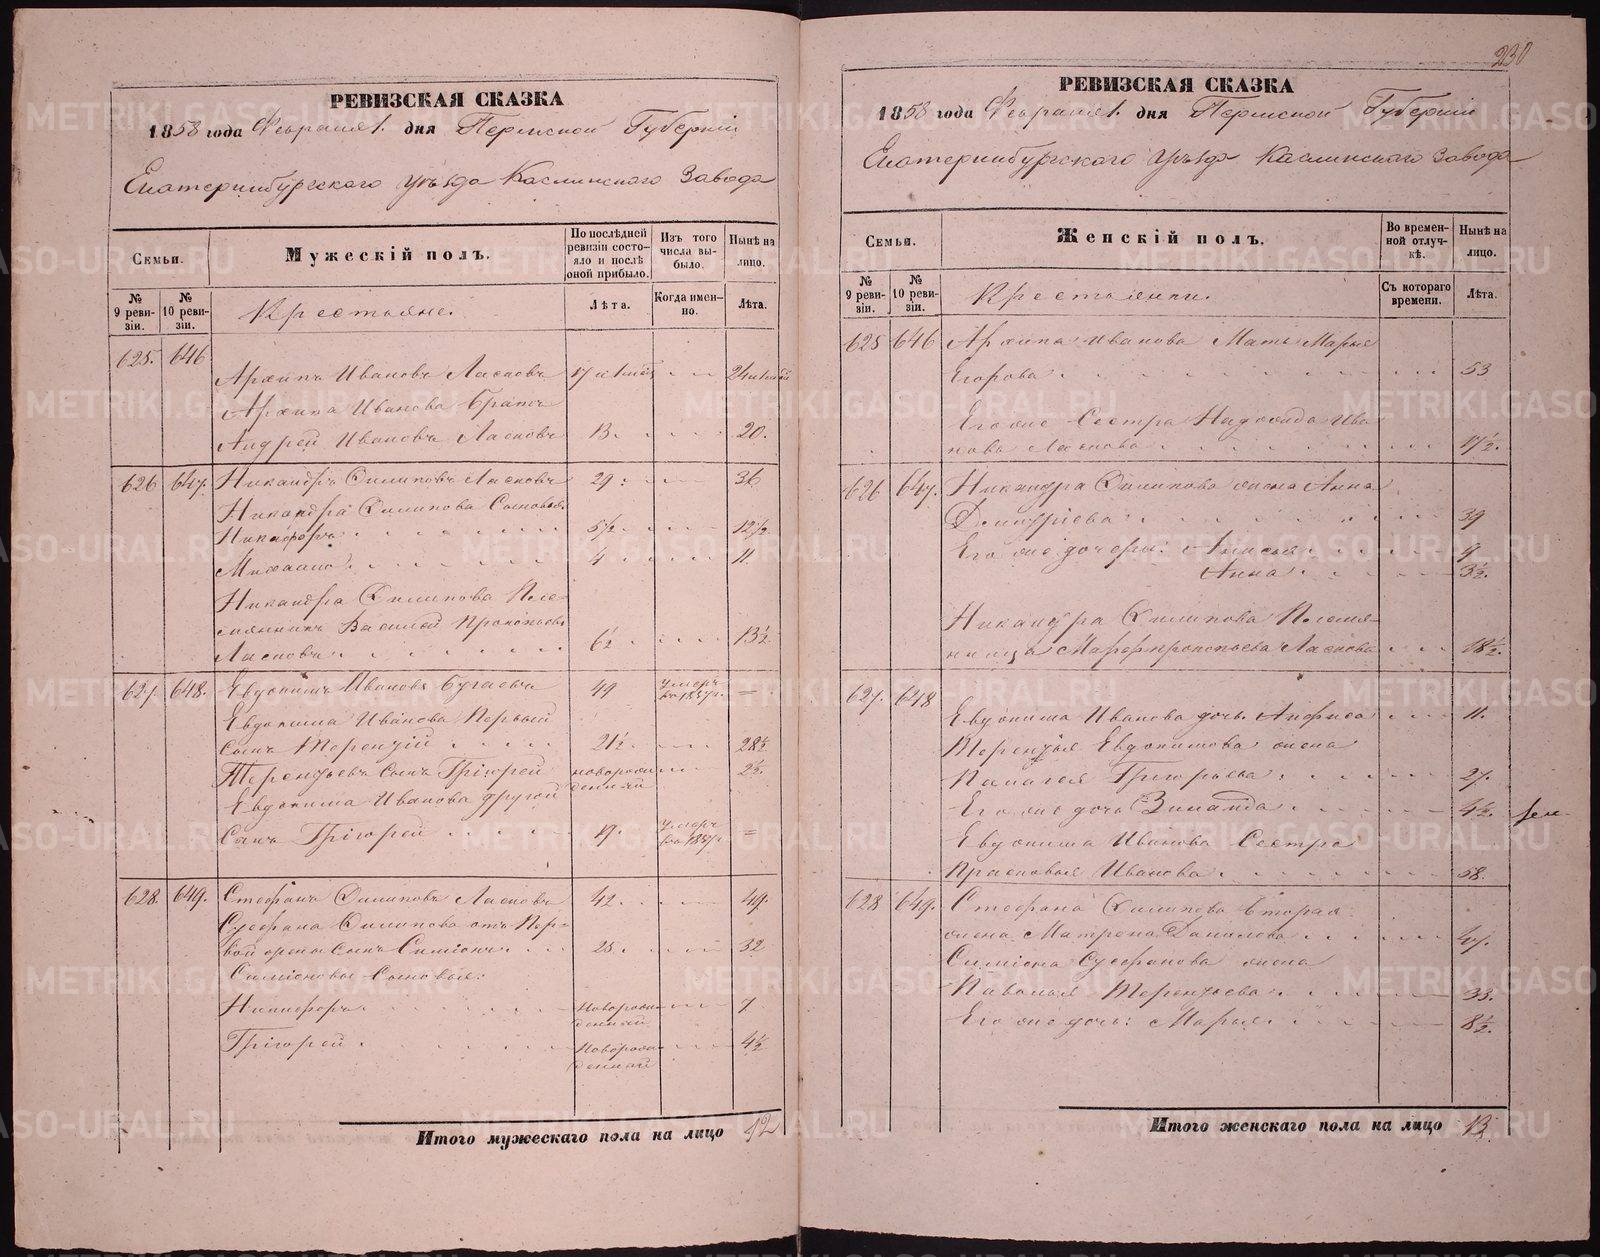 РЕВИЗСКАЯ СКАЗКА
1858 года Февраля 1. дня Пермской Губернiи
Екатеринбургскаго уѣзда Каслинскаго Завода
Семьи.
Мужескiй полъ.
По послѣдней ревизiи состояло и послѣ оной прибыло.
Изъ того числа выбыло.
Нынѣ на лицо.
№ 9 ревизiи.
№ 10 ревизiи.
Крестьяне.
Лѣта.
Когда именно.
Лѣта.
625. 646
Архипъ Ивановъ Ласковъ 17
Архипа Иванова Братъ
Андрей Ивановъ Ласковъ 13. 20.
626 647. Никандръ Филиповъ Ласковъ 29. 36
Никандра Филипова Сыновья
Никифоръ 5½ 12½
Михаило 4 11
Никандра Филипова Пле-
мянникъ Василей Прокопьевъ 6½ 13½
Ласковъ
627. 648. Евдокимъ Ивановъ Бугаевъ 49 умеръ въ 1857 г. —
Евдокима Иванова Первый
сынъ Терентiй 21½ 28½
Терентьевъ сынъ Григорей новорожденный 2½.
Евдокима Иванова другой
Сынъ Григорей 19. умеръ =
628. 649. Стефанъ Филиповъ Ласковъ 42. 49.
Стефана Филипова отъ Пер-
вой жены сынъ Симiонъ 25. 32
Симiоновы Сыновья:
Никифоръ Новорожденный 7
Григорей Новорожденный 4½
Итого мужескаго пола на лицо 12
230
РЕВИЗСКАЯ СКАЗКА
1858 года Февраля 1. дня Пермской Губернiи
Екатеринбургскаго Уѣзда Каслинскаго Завода
Семьи.
Женскiй полъ.
Во временной отлучкѣ.
Нынѣ на лицо.
№ 9 ревизiи.
№ 10 ревизiи.
Крестьянки.
Съ котораго времени.
Лѣта.
625 646 Архипа Иванова Мать Марья
Егорова 53
Его же Сестра Ива
нова Ласкова 17½.
626 647. Никандра Филипова жена Анна
Дмитрiева 39
Его же дочери: Анисья 9
Анна 3½.
Никандра Филипова Племя-
ница Марфа Прокопьева Ласкова 18½.
627. 648
Евдокима Иванова дочь Анфиса 11.
Терентья Евдокимова жена
Палагея Григорьева 27.
Его же дочь Зинаида 4½.
Евдокима Иванова Сестра
Прасковья Иванова 58.
628 649. Стефана Филипова вторая
жена Матрена Данилова 47.
Симiона Стефанова жена
Павалья Терентьева 33.
Его же дочь: Марья 8½.
Итого женскаго пола на лицо 13.
METRIKI.GASO-URAL.RU